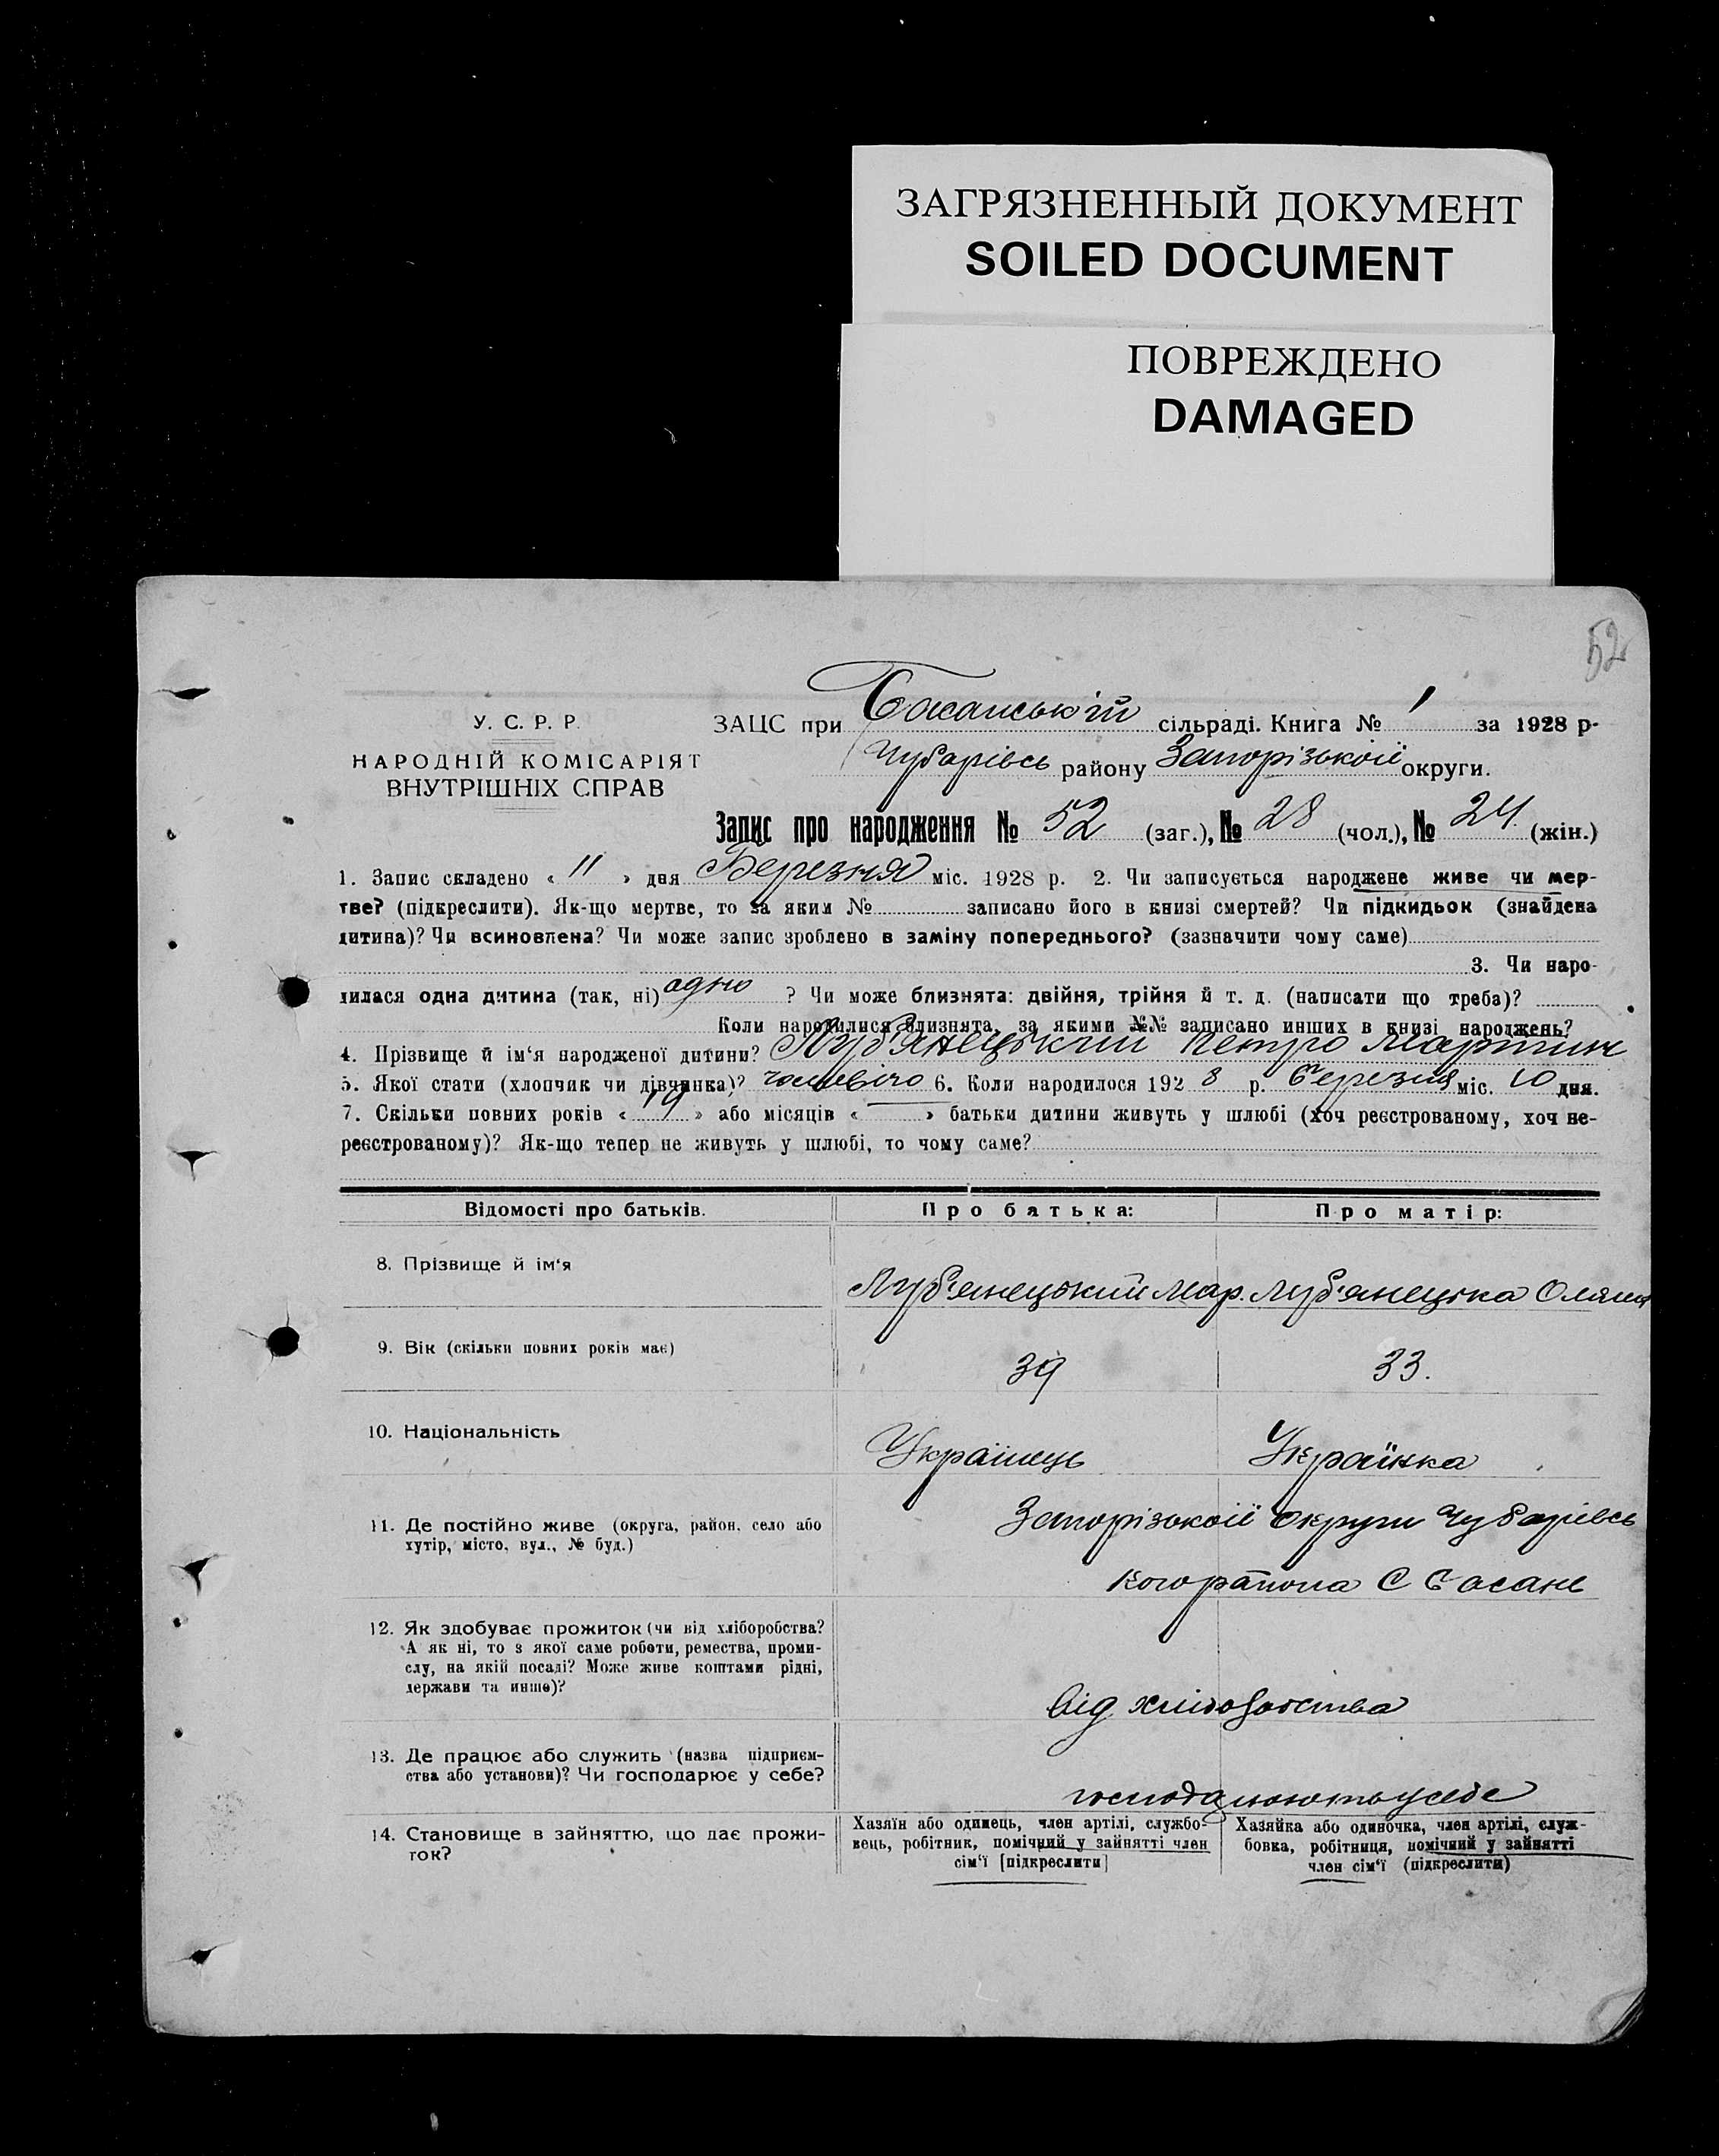 ЗАГРЯЗНЕННЫЙ ДОКУМЕНТ
SOILED DOCUMENT
ПОВРЕЖДЕНО
DAMAGED
52
У. С. Р. Р.
НАРОДНІЙ КОМІСАРІЯТ
ВНУТРІШНІХ СПРАВ
ЗАЦС при Басанській сільраді. Книга № 1 за 1928 р.
Чубарівсь району Запорізької округи.
Запис про народження № 52 (заг.), № 28 (чол.), № 24 (жін.)
1. Запис складено « 11 » дня Березня міс. 1928 р. 2. Чи записується народжене живе чи мер-
тве? (підкреслити). Як-що мертве, то за яким № записано його в книзі смертей? Чи підкидьок (знайдена
дитина)? Чи всиновлена? Чи може запис зроблено в заміну попереднього? (зазначити чому саме)
3. Чи наро-
дилася одна дитина (так, ні) одно ? Чи може близнята: двійня, трійня й т. д. (написати що треба)?
Коли народилися близнята, за якими №№ записано инших в книзі народжень?
4. Прізвище й ім‘я народженої дитини? Луб'янецький Петро Мартин
5. Якої стати (хлопчик чи дівчинка)? чоловічо 6. Коли народилося 192 8 р. березня міс. 10 дня.
7. Скільки повних років « 19 » або місяців « — » батьки дитини живуть у шлюбі (хоч реєстрованому, хоч не-
реєстрованому)? Як-що тепер не живуть у шлюбі, то чому саме?
Відомості про батьків. Про батька: Про матір:
8. Прізвище й ім‘я
Луб'янецький Мар. Луб'янецька Оляна
9. Вік (скільки повних років має)
39 33.
10. Національність
Українець Українка
11. Де постійно живе (округа, район, село або
хутір, місто, вул., № буд.)
Запорізької округи Чубарівсь
кого района С Басане
12. Як здобуває прожиток (чи від хліборобства?
А як ні, то з якої саме роботи, ремества, проми-
слу, на якій посаді? Може живе коштами рідні,
держави та инше)?
від хліборобства
13. Де працює або служить (назва підприєм-
ства або установи)? Чи господарює у себе?
господарюють у себе
14. Становище в зайняттю, що дає прожи-
ток?
Хазяїн або одинець, член артілі, службо-
вець, робітник, помічний у зайнятті член
сім‘ї [підкреслити]
Хазяйка або одиночка, член артілі, служ-
бовка, робітниця, помічний у зайнятті
член сім‘ї (підкреслити)